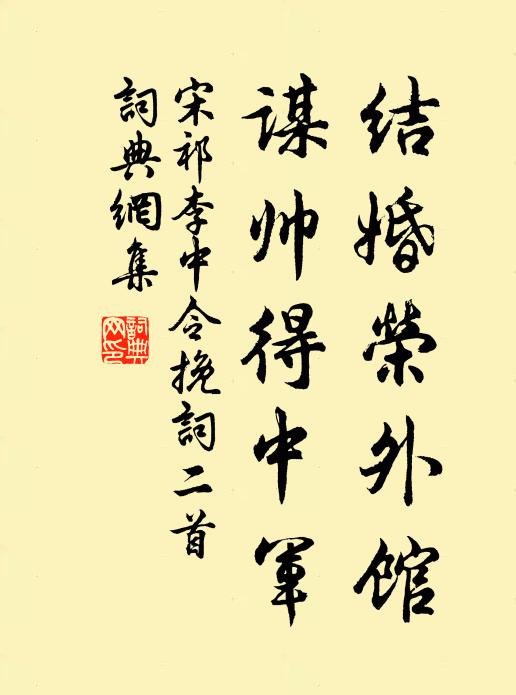 结婚榮外馆
谋帅得中軍
宋祁李中令挽詞二首
詞典網集
詞典网印